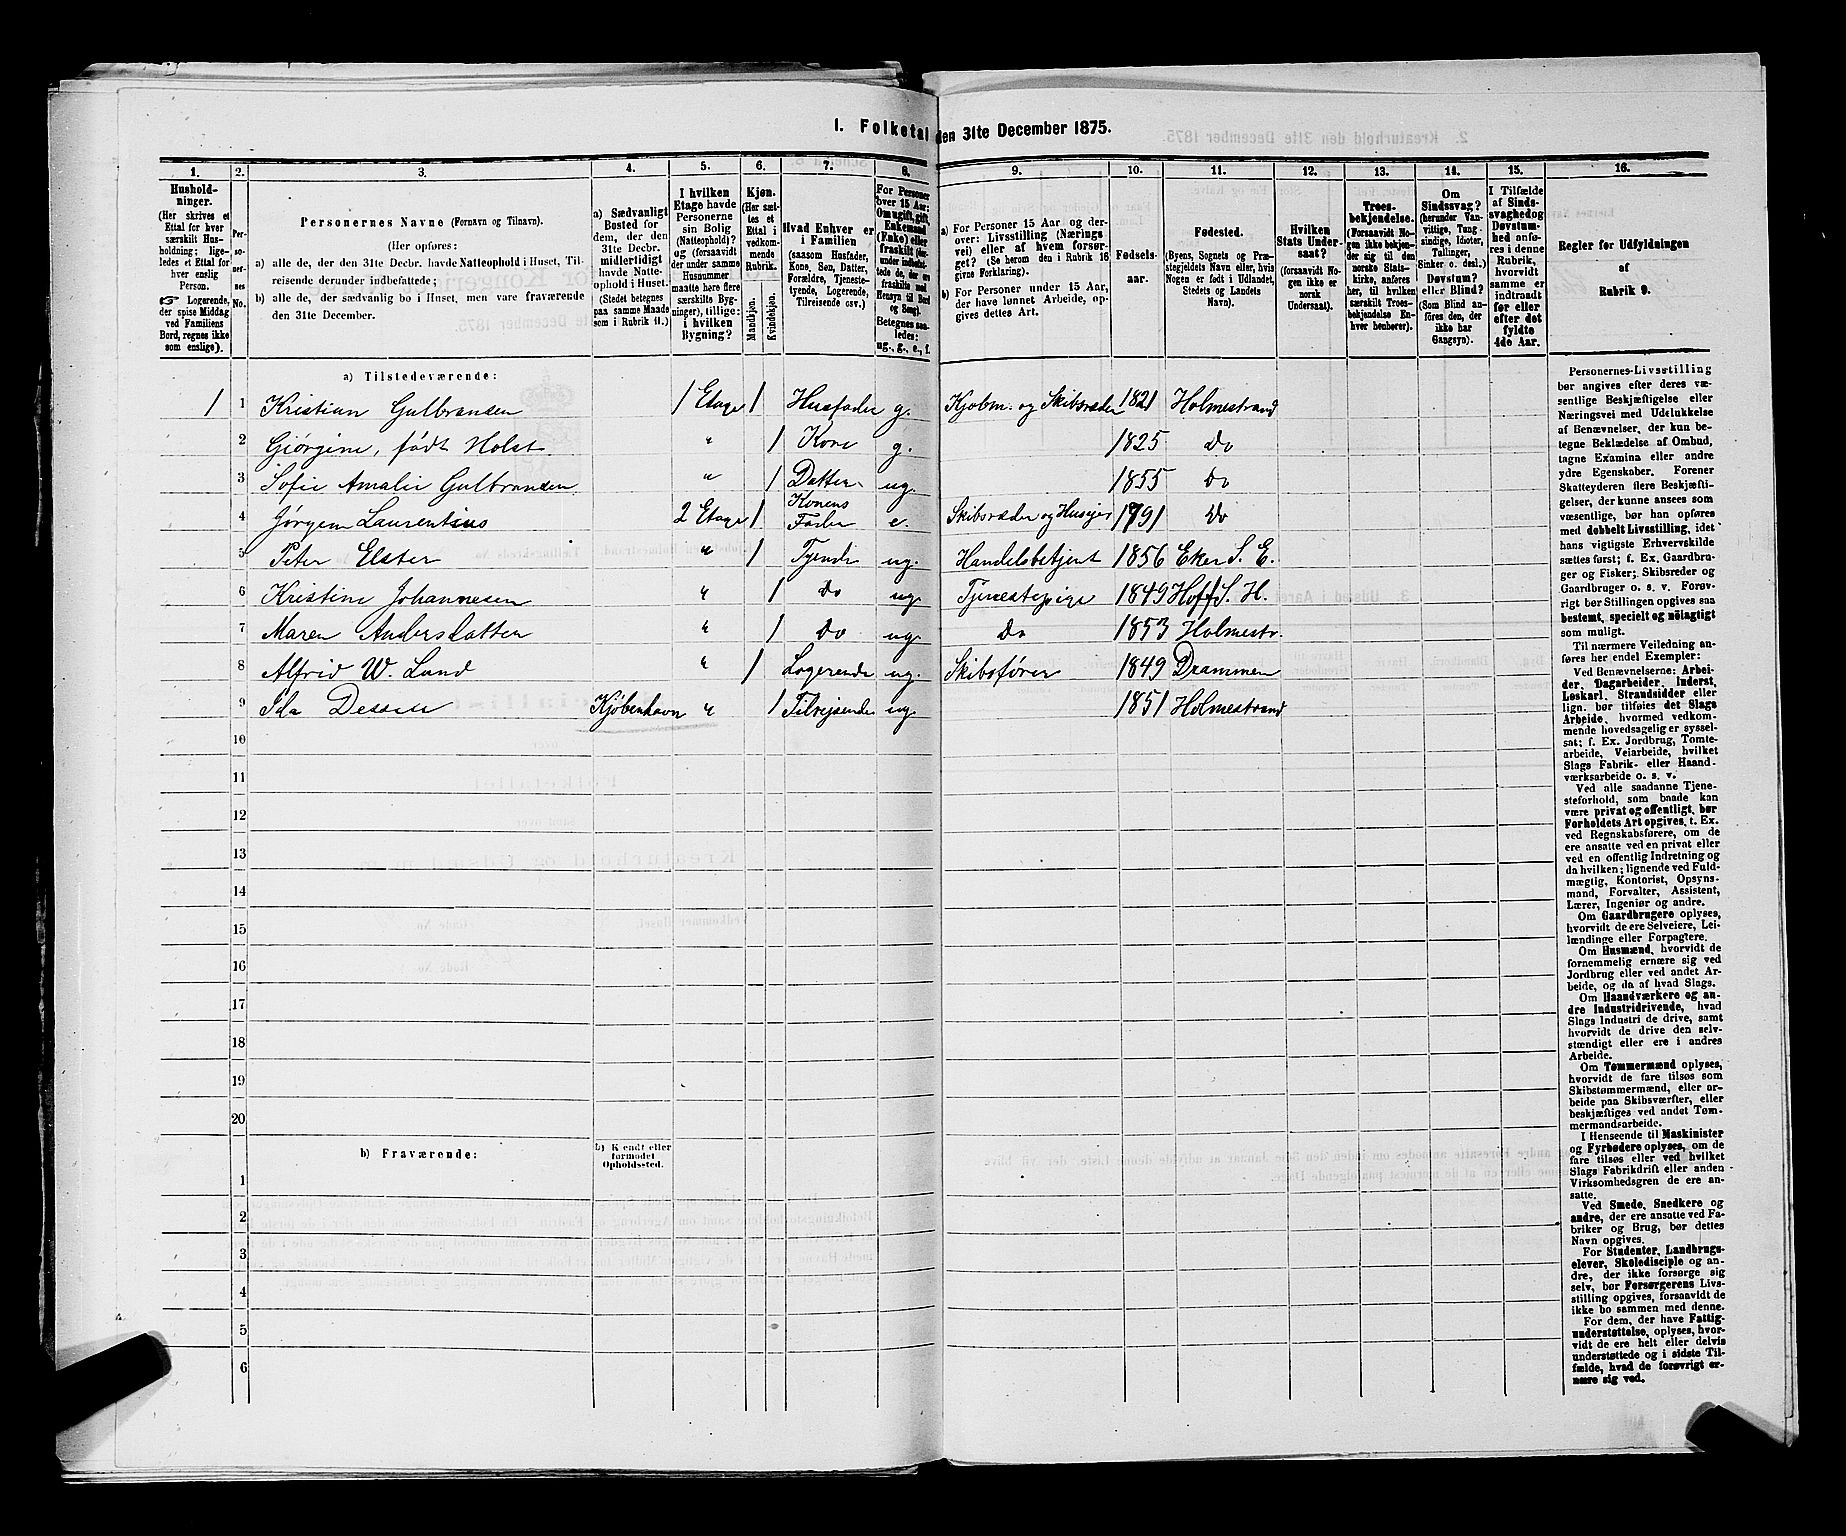 1. Folketal den 31te December 1875.
1. 2. 3. 4. 5. 6. 7. 8. 9. 10. 11. 12. 13. 14. 15. 16.
Hushold-
ninger.
(Her skrives et
Ettal for hver
særskilt Hus-
holdning; lige-
ledes et Ettal for
hver enslig
Person.
Logerende,
der spise Middag
ved Familiens
Bord, regnes ikke
som enslige).
Per-
so-
ner-
nes
No.
Personernes Navne (Fornavn og Tilnavn).
(Her opføres:
a) alle de, der den 31te Decbr. havde Natteophold i Huset, Til-
reisende derunder indbefattede;
b) alle de, der sædvanlig bo i Huset, men vare fraværende
den 31te December.
a) Sædvanligt
Bosted for
dem, der den
31te Decbr.
midlertidigt
havde Natte-
ophold i Huset.
(Stedet betegnes
paa samme Maade
som i Rubrik 11.)
I hvilken
Etage havde
Personerne
sin Bolig
(Natteophold)?
og (forsaavidt
der under samme
Husnummer
maatte høre flere
særskilte Byg-
ninger), tillige:
i hvilken
Bygning?
Kjøn.
(Her sæt-
tes et
Ettal i
vedkom-
mende
Rubrik.
Mandkjøn.
Kvindekjøn.
Hvad Enhver er
i Familien
(saasom Husfader,
Kone, Søn, Datter,
Forældre, Tjeneste-
tyende, Logerende,
Tilreisende osv.)
For Personer
over 15 Aar:
Om ugift, gift,
Enkemand
(Enke) eller
fraskilt
Betegnes saa-
ledes:
ug., g., e., f.
a) For Personer 15 Aar og der-
over: Livsstilling (Nærings
vei) eller af hvem forsør-
get? (Se herom den i Rubrik 16
givne Forklaring).
b) For Personer under 15 Aar,
der have lønnet Arbeide, op-
gives dettes Art.
Fødsels-
aar.
Fødested.
(Byens, Sognets og Præ-
stegjeldets Navn eller, hvis
Nogen er født i Udlandet,
Stedets og Landets
Navn).
Hvilken
Stats Under-
saat?
(forsaavidt No-
gen ikke er
norsk
Undersaat).
Troes-
bekjendelse.
(Forsaavidt No-
gen ikke bekjen-
der sig til den
norske Stats-
kirke, anføres
her, til hvilken
særskilt Troes-
bekjendelse En-
hver henhører).
Om
Sindssvag?
(herunder Van-
vittige, Tung-
sindige, Idioter,
Tullinger,
Sinker o. desl.)
Døvstum?
eller Blind?
(Som Blind an-
føres den, der
ikke har
Gangsyn).
I Tilfælde
af Sinds-
svaghed og
Døvstum-
hed anfø-
res i denne
Rubrik,
hvorvidt
samme er
indtraadt
før eller
efter det
fyldte
4de Aar.
Regler for Udfyldningen
af
Rubrik 9.
a) Tilstedeværende:
1 1 Kristian Gulbransen 1 Etage 1 Husfader g. Kjøbm. og Skibsræder 1821 Holmestrand
2 Giörgine, født Holst " 1 Kone g. 1825 Do
3 Sofie Amalie Gulbransen " 1 Datter ug. 1855 Do
4 Jørgen Laurentius 2 Etage 1 Konens Fader e. Skibsræder og Huseier 1791 Do
5 Peter Elster " 1 Tyende ug. Handelsbetjent 1856 Eker S. E.
6 Kristine Johannesen " 1 Do ug. Tjenestepige 1849 Hoff S. H.
7 Maren Andersdatter " 1 Do ug. Do 1853 Holmestr.
8 Alfrid W. Lund " 1 Logerende ug. Skibsfører 1849 Drammen
9 Ida Kjøbenhavn " 1 Tilrejsende ug. 1851 Holmestrand
10
11
12
13
14
15
16
17
18
19
20
b) Fraværende:
b) Kjendt eller
formodet
Opholdssted.
1
2
3
4
5
6
Personernes Livsstilling
bør angives efter deres væ-
sentlige Beskjæftigelse eller
Næringsvei med Udelukkelse
af Benævnelser, der kun be-
tegne Beklædelse af Ombud,
tagne Examina eller andre
ydre Egenskaber. Forener
Skatteyderen flere Beskjæfti-
gelser, der kunne ansees som
væsentlige, bør han opføres
med dobbelt Livsstilling, idet
hans vigtigste Erhvervskilde
sættes først; f. Ex. Gaardbru-
ger og Fisker; Skibsreder og
Gaardbruger o. s. v. Forøv-
rigt bør Stillingen opgives saa
bestemt, specielt og nöiagtigt
som muligt.
Til nærmere Veiledning an-
føres her endel Exempler:
Ved Benævnelserne: Arbei-
der, Dagarbeider, Inderst,
Løskarl, Strandsidder eller
lign. bør tilføies det Slags
Arbeide, hvormed vedkom-
mende hovedsagelig er syssel-
sat; f. Ex. Jordbrug, Tomte-
arbeide, Veiarbeide, hvilket
Slags Fabrik- eller Haand-
værksarbeide o. s. v.
Ved alle saadanne Tjene-
steforhold, som baade kan
være privat og offentligt, bør
Forholdets Art opgives, t. Ex.
ved Regnskabsførere, om de
ere ansatte ved en privat eller
ved en offentlig Indretning og
da hvilken; lignende ved Fuld-
mægtig, Kontorist, Opsyns-
mand, Forvalter, Assistent,
Lærer, Ingeniør og andre.
Om Gaardbrugere oplyses,
hvorvidt de ere Selveiere, Lei-
lændinge eller Forpagtere.
Om Husmænd, hvorvidt de
fornemmelig ernære sig ved
Jordbrug eller ved andet Ar-
beide, og da af hvad Slags.
Om Haandværkere og an-
dre Industridrivende, hvad
Slags Industri de drive, samt
hvorvidt de drive den selv-
stændigt eller ere i andres
Arbeide.
Om Tømmermænd oplyses,
hvorvidt de fare tilsøs som
Skibstømmermænd, eller ar-
beide paa Skibsværfter, eller
beskjæftiges ved andet Tøm-
mermandsarbeide.
I Henseende til Maskinister
og Fyrbødere oplyses, om de
fare tilsøs eller ved hvilket
Slags Fabrikdrift eller anden
Virksomhedsgren de ere an-
satte.
Ved Smede, Snedkere og
andre, der ere ansatte ved Fa-
briker og Brug, bør dettes
Navn opgives.
For Studenter, Landbrugs-
elever, Skoledisciple og an-
dre, der ikke forsørge sig
selv, bør Forsørgerens Livs-
stilling opgives, forsaavidt de
ikke bo sammen med denne.
For dem, der have Fattig-
understøttelse, oplyses, hvor-
vidt de ere helt eller delvis
understøttede og i sidste Til-
fælde, hvad de forøvrigt er-
nære sig ved.